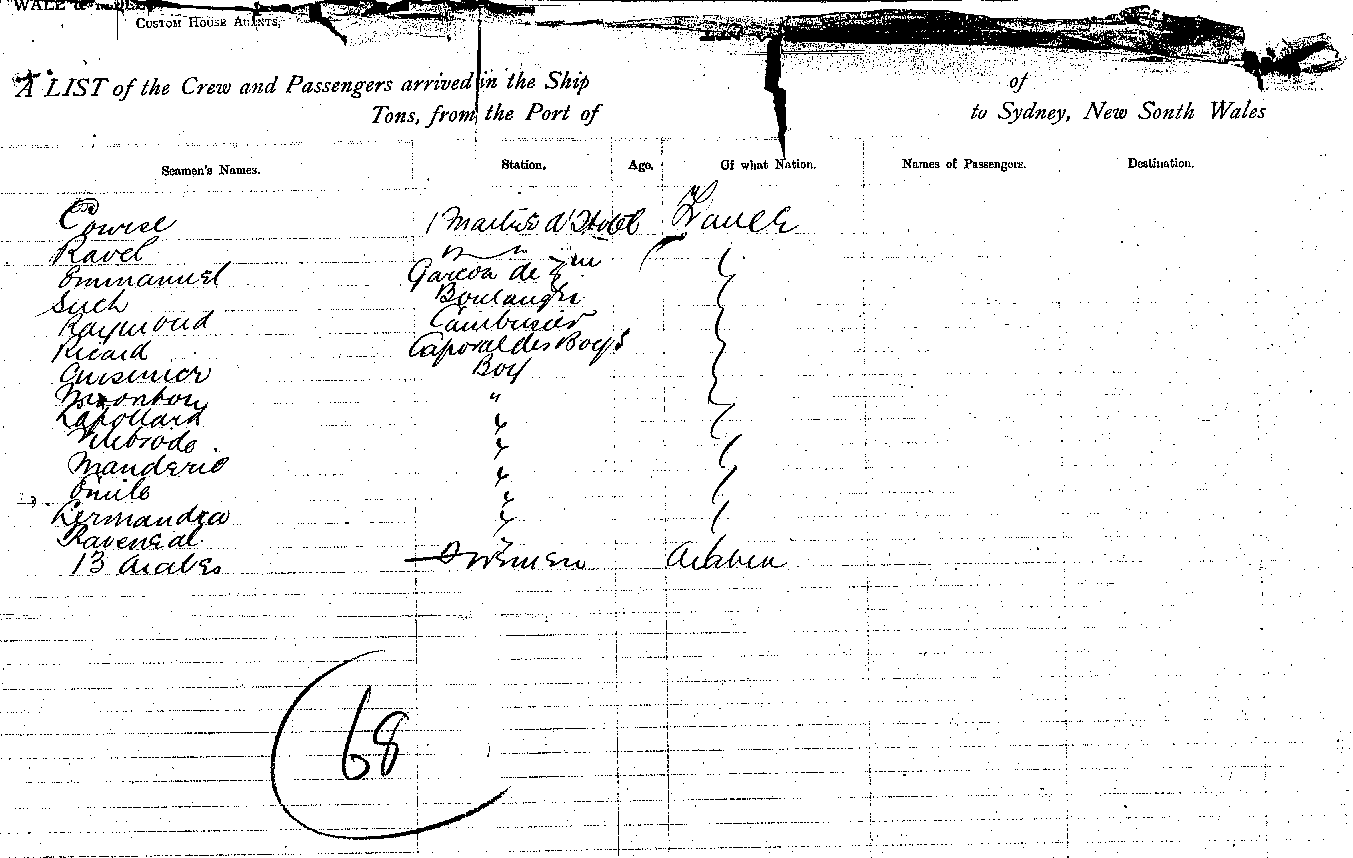 CUSTOM HOUSE AGENTS,
A LIST of the Crew and Passengers arrived in the Ship of
Tons, from the Port of to Sydney, New South Wales
Seamen's Names. Station. Age. Of what Nation. Names of Passengers. Destination.
1 Maitre d'Hotel France
Ravel " "
Emmanuel Garcon de
Such Boulanger
Raymond Cambusier
Ricard Caporal des Boys
Cuisinier Boy
"
Lapollard "
"
Manderic "
Emile "
"
13 Arabes Firemen Arabia
68